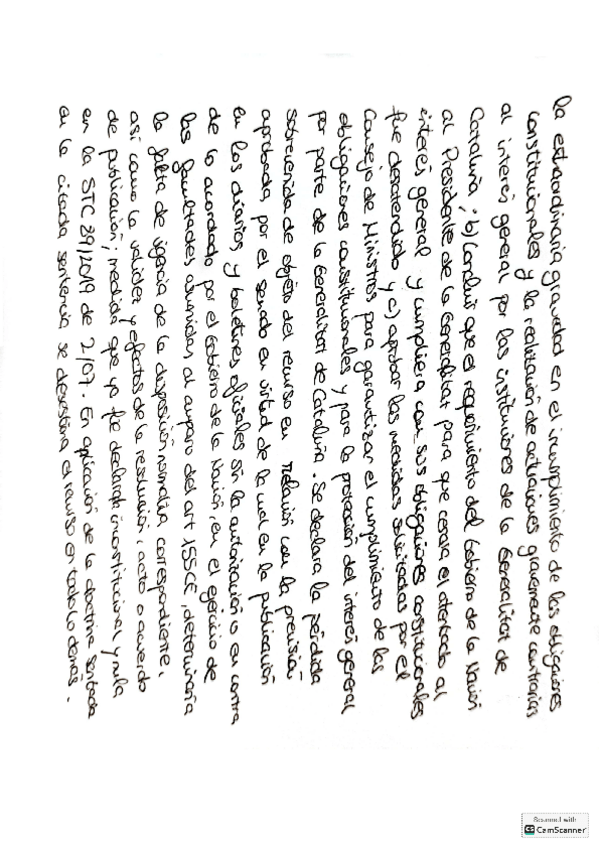 la extraordinaria gravedad en el incumplimiento de las obligaciones
constitucionales y la realización de actuaciones gravemente contrarias
al interés general por las instituciones de la Generalitat de
Cataluña; b) Concluir que el requerimiento del Gobierno de la Nación
al Presidente de la Generalitat para que cesara el atentado al
interés general y cumpliera con sus obligaciones constitucionales
fue desatendido y c) aprobar las medidas solicitadas por el
Consejo de Ministros para garantizar el cumplimiento de las
obligaciones constitucionales y para la protección del interés general
por parte de la Generalitat de Cataluña. Se declara la pérdida
sobrevenida de objeto del recurso en relación con la previsión
aprobada por el senado en virtud de la cual en la publicación
en los diarios y boletines oficiales sin la autorización o en contra
de lo acordado por el Gobierno de la Nación, en el ejercicio de
las facultades asumidas al amparo del art 155CE, determinaría
la falta de vigencia de la disposición normativa correspondiente,
así como la validez y efectos de la resolución, acto o acuerdo
de publicación; medida que ya fue declarada inconstitucional y nula
en la STC 89/2019 de 2/07. En aplicación de la doctrina sentada
en la citada sentencia se desestima el recurso en todo lo demás.
Scanned with
CS CamScanner